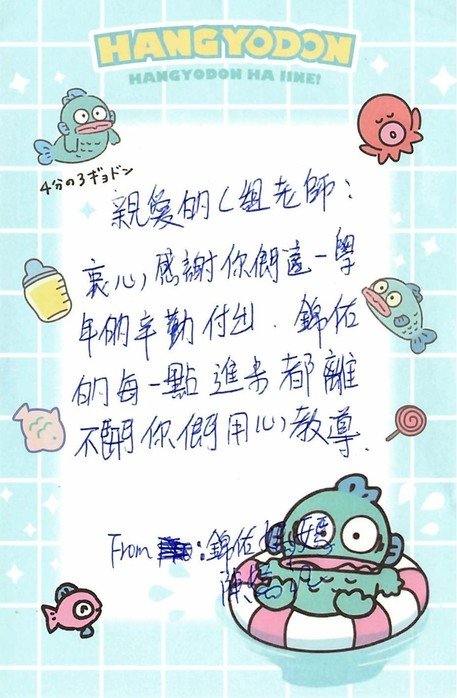 HANGYODON
HANGYODON HA IINE!
4分の3ギョドン
親愛的C組老師：
衷心感謝你們這一學
年的辛勤付出．錦佑
的每一點進步都離
不開你們用心教導．
From ：錦佑媽媽
陳